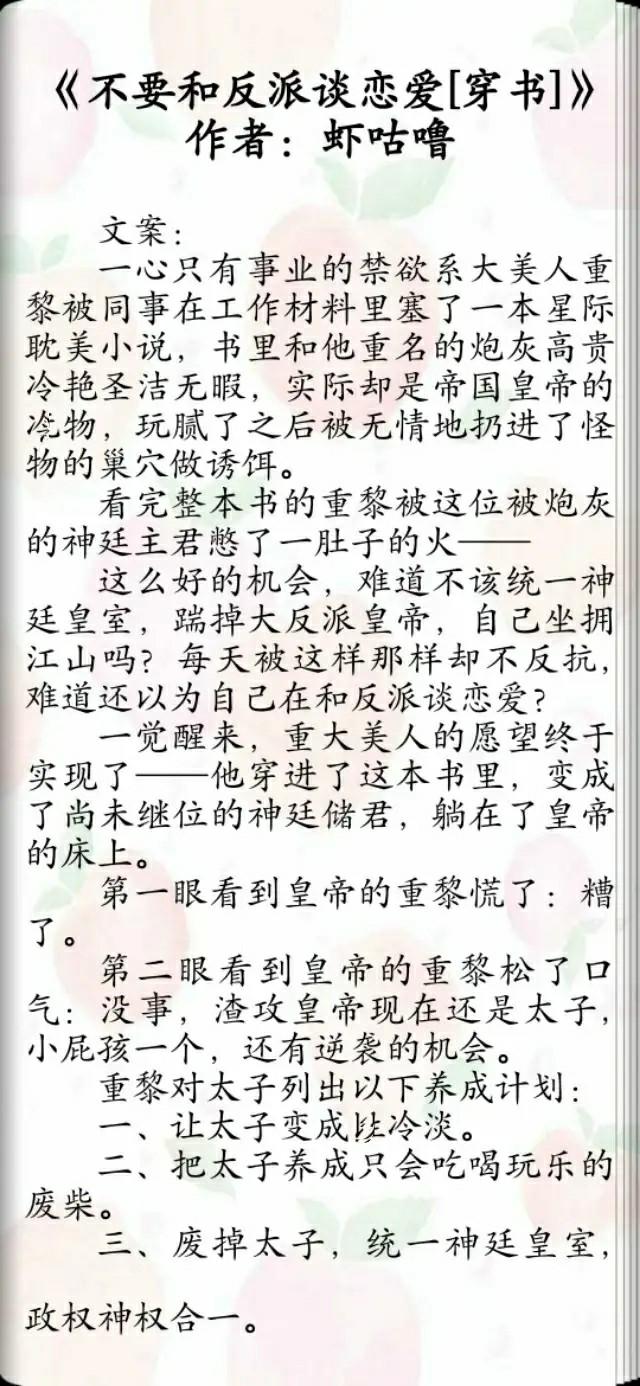 《不要和反派谈恋爱[穿书]》
作者：虾咕噜
文案：
一心只有事业的禁欲系大美人重
黎被同事在工作材料里塞了一本星际
耽美小说，书里和他重名的炮灰高贵
冷艳圣洁无暇，实际却是帝国皇帝的
物，玩腻了之后被无情地扔进了怪
物的巢穴做诱饵。
看完整本书的重黎被这位被炮灰
的神廷主君憋了一肚子的火——
这么好的机会，难道不该统一神
廷皇室，踹掉大反派皇帝，自己坐拥
江山吗？每天被这样那样却不反抗，
难道还以为自己在和反派谈恋爱？
一觉醒来，重大美人的愿望终于
实现了——他穿进了这本书里，变成
了尚未继位的神廷储君，躺在了皇帝
的床上。
第一眼看到皇帝的重黎慌了：糟
了。
第二眼看到皇帝的重黎松了口
气：没事，渣攻皇帝现在还是太子，
小屁孩一个，还有逆袭的机会。
重黎对太子列出以下养成计划：
一、让太子变成冷淡。
二、把太子养成只会吃喝玩乐的
废柴。
三、废掉太子，统一神廷皇室，
政权神权合一。